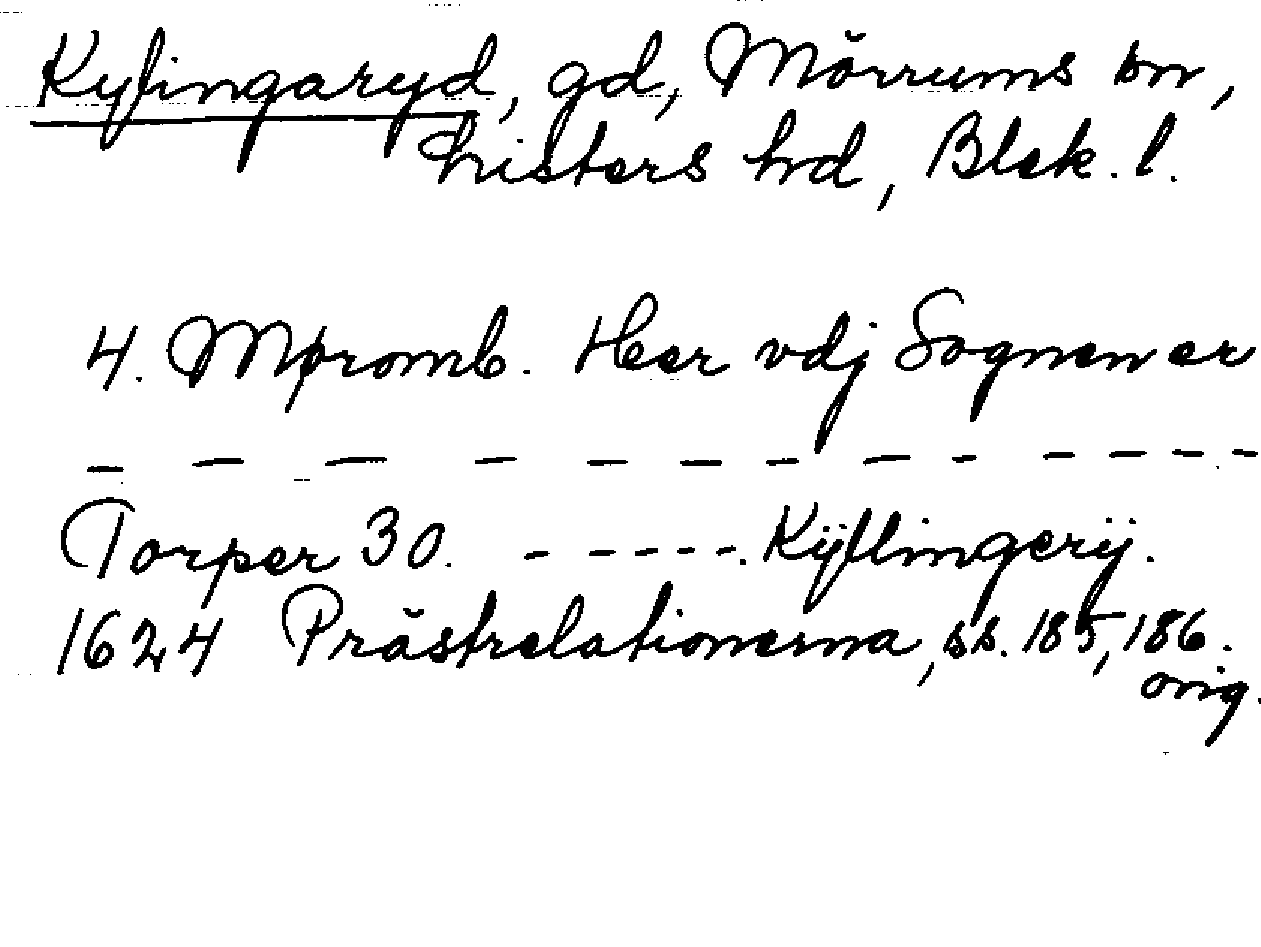 Kylingaryd, gd, Mörrums sn,
Listers hd, Blek. l.
4. Møromb. Her vdj Sognen er
— — — — — — — — — — — —
Torper 30. - - - - -. Kÿflingerÿ.
1624 Prästrelationerna, ss. 185, 186.
orig.